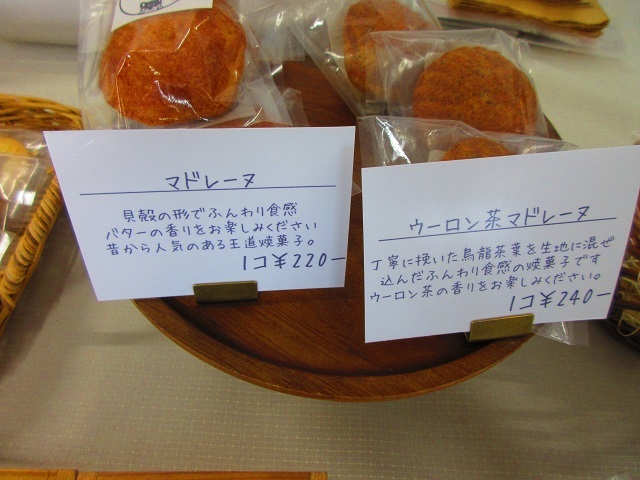 マドレーヌ
貝殻の形でふんわり食感
バターの香りをお楽しみください
昔から人気のある王道焼菓子。
1コ¥220-
ウーロン茶マドレーヌ
丁寧に挽いた烏龍茶葉を生地に混ぜ
込んだふんわり食感の焼菓子です
ウーロン茶の香りをお楽しみください。
1コ¥240-